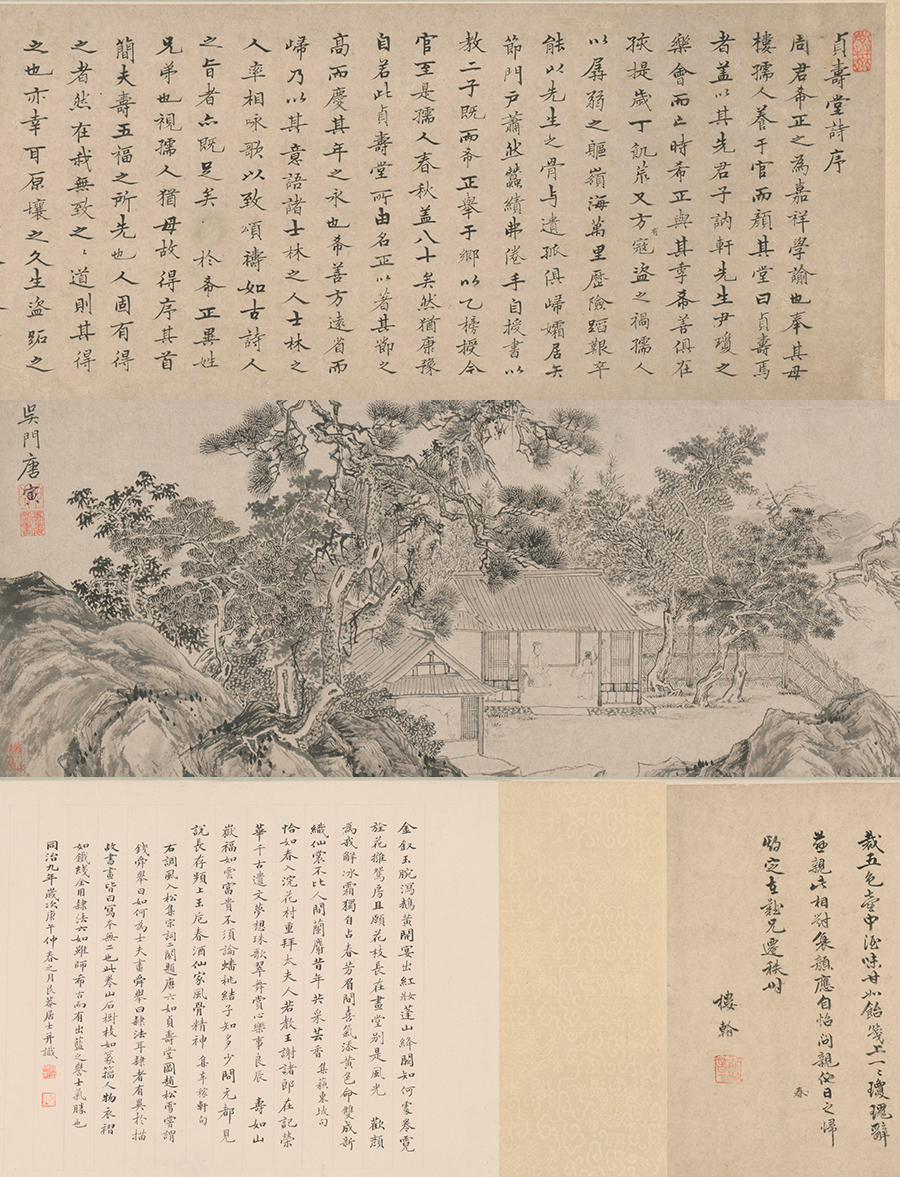 貞壽堂詩序
周君希正之為嘉祥學諭也奉其母
樓孺人養于官而顏其堂曰貞壽焉
者蓋以其先君子訥軒先生尹瓊之
樂會而亡時希正與其季希善俱在
孩提歲丁飢荒又方有寇盜之禍孺人
以孱弱之軀嶺海萬里歷險蹈艱卒
能以先生之骨与遺孤俱歸孀居矢
節門戶蕭然蠶績弗倦手自授書以
教二子既而希正舉于鄉以乙榜授今
官至是孺人春秋蓋八十矣然猶康豫
自若此貞壽堂所由名正以著其節之
高而慶其年之永也希善方遠省而
歸乃以其意語諸士林之人士林之
人率相咏歌以致頌禱如古詩人
之旨者亦既足矣 於希正異姓
兄弟也視孺人猶母故得序其首
簡夫壽五福之所先也人固有得
之者然在我無致之之道則其得
之也亦幸耳原壤之久生盜跖之
吳門唐寅
裁五色壺中酒味甘如飴箋上一一瓊瑰辭
萱親此相對衰顏應自怡問親佽日之歸
樓翰
春
金釵玉腕瀉鵝黃開宴出紅妝蓬山絳闕知何處卷霓
旌花擁鴛房且願花枝長在畫堂別是風光 歡顏
為我解冰霜獨自占春芳眉間喜氣添黃色命雙成新
織仙裳不比人間蘭麝昔年共采芸香 集蘇東坡句
恰如春入浣花村重拜太夫人若教王謝諸郎在記榮
華千古遺文夢想珠歌翠舞賞心樂事良辰 壽如山
嶽福如雲富貴不須論蟠桃結子知多少問元都見
說長存頻上玉卮春酒仙家風骨精神 集辛稼軒句
右調風入松集宋詞二闋題唐六如貞壽堂圖趙松雪嘗謂
錢舜舉曰如何為士夫畫舜舉曰隸法耳隸者有異於描
故書畫皆曰寫本無二也此卷山石樹枝如篆籀人物衣褶
如鐵綫全用隸法六如雖師希古而有出藍之譽士氣勝也
同治九年歲次庚午仲春之月艮菴居士并識